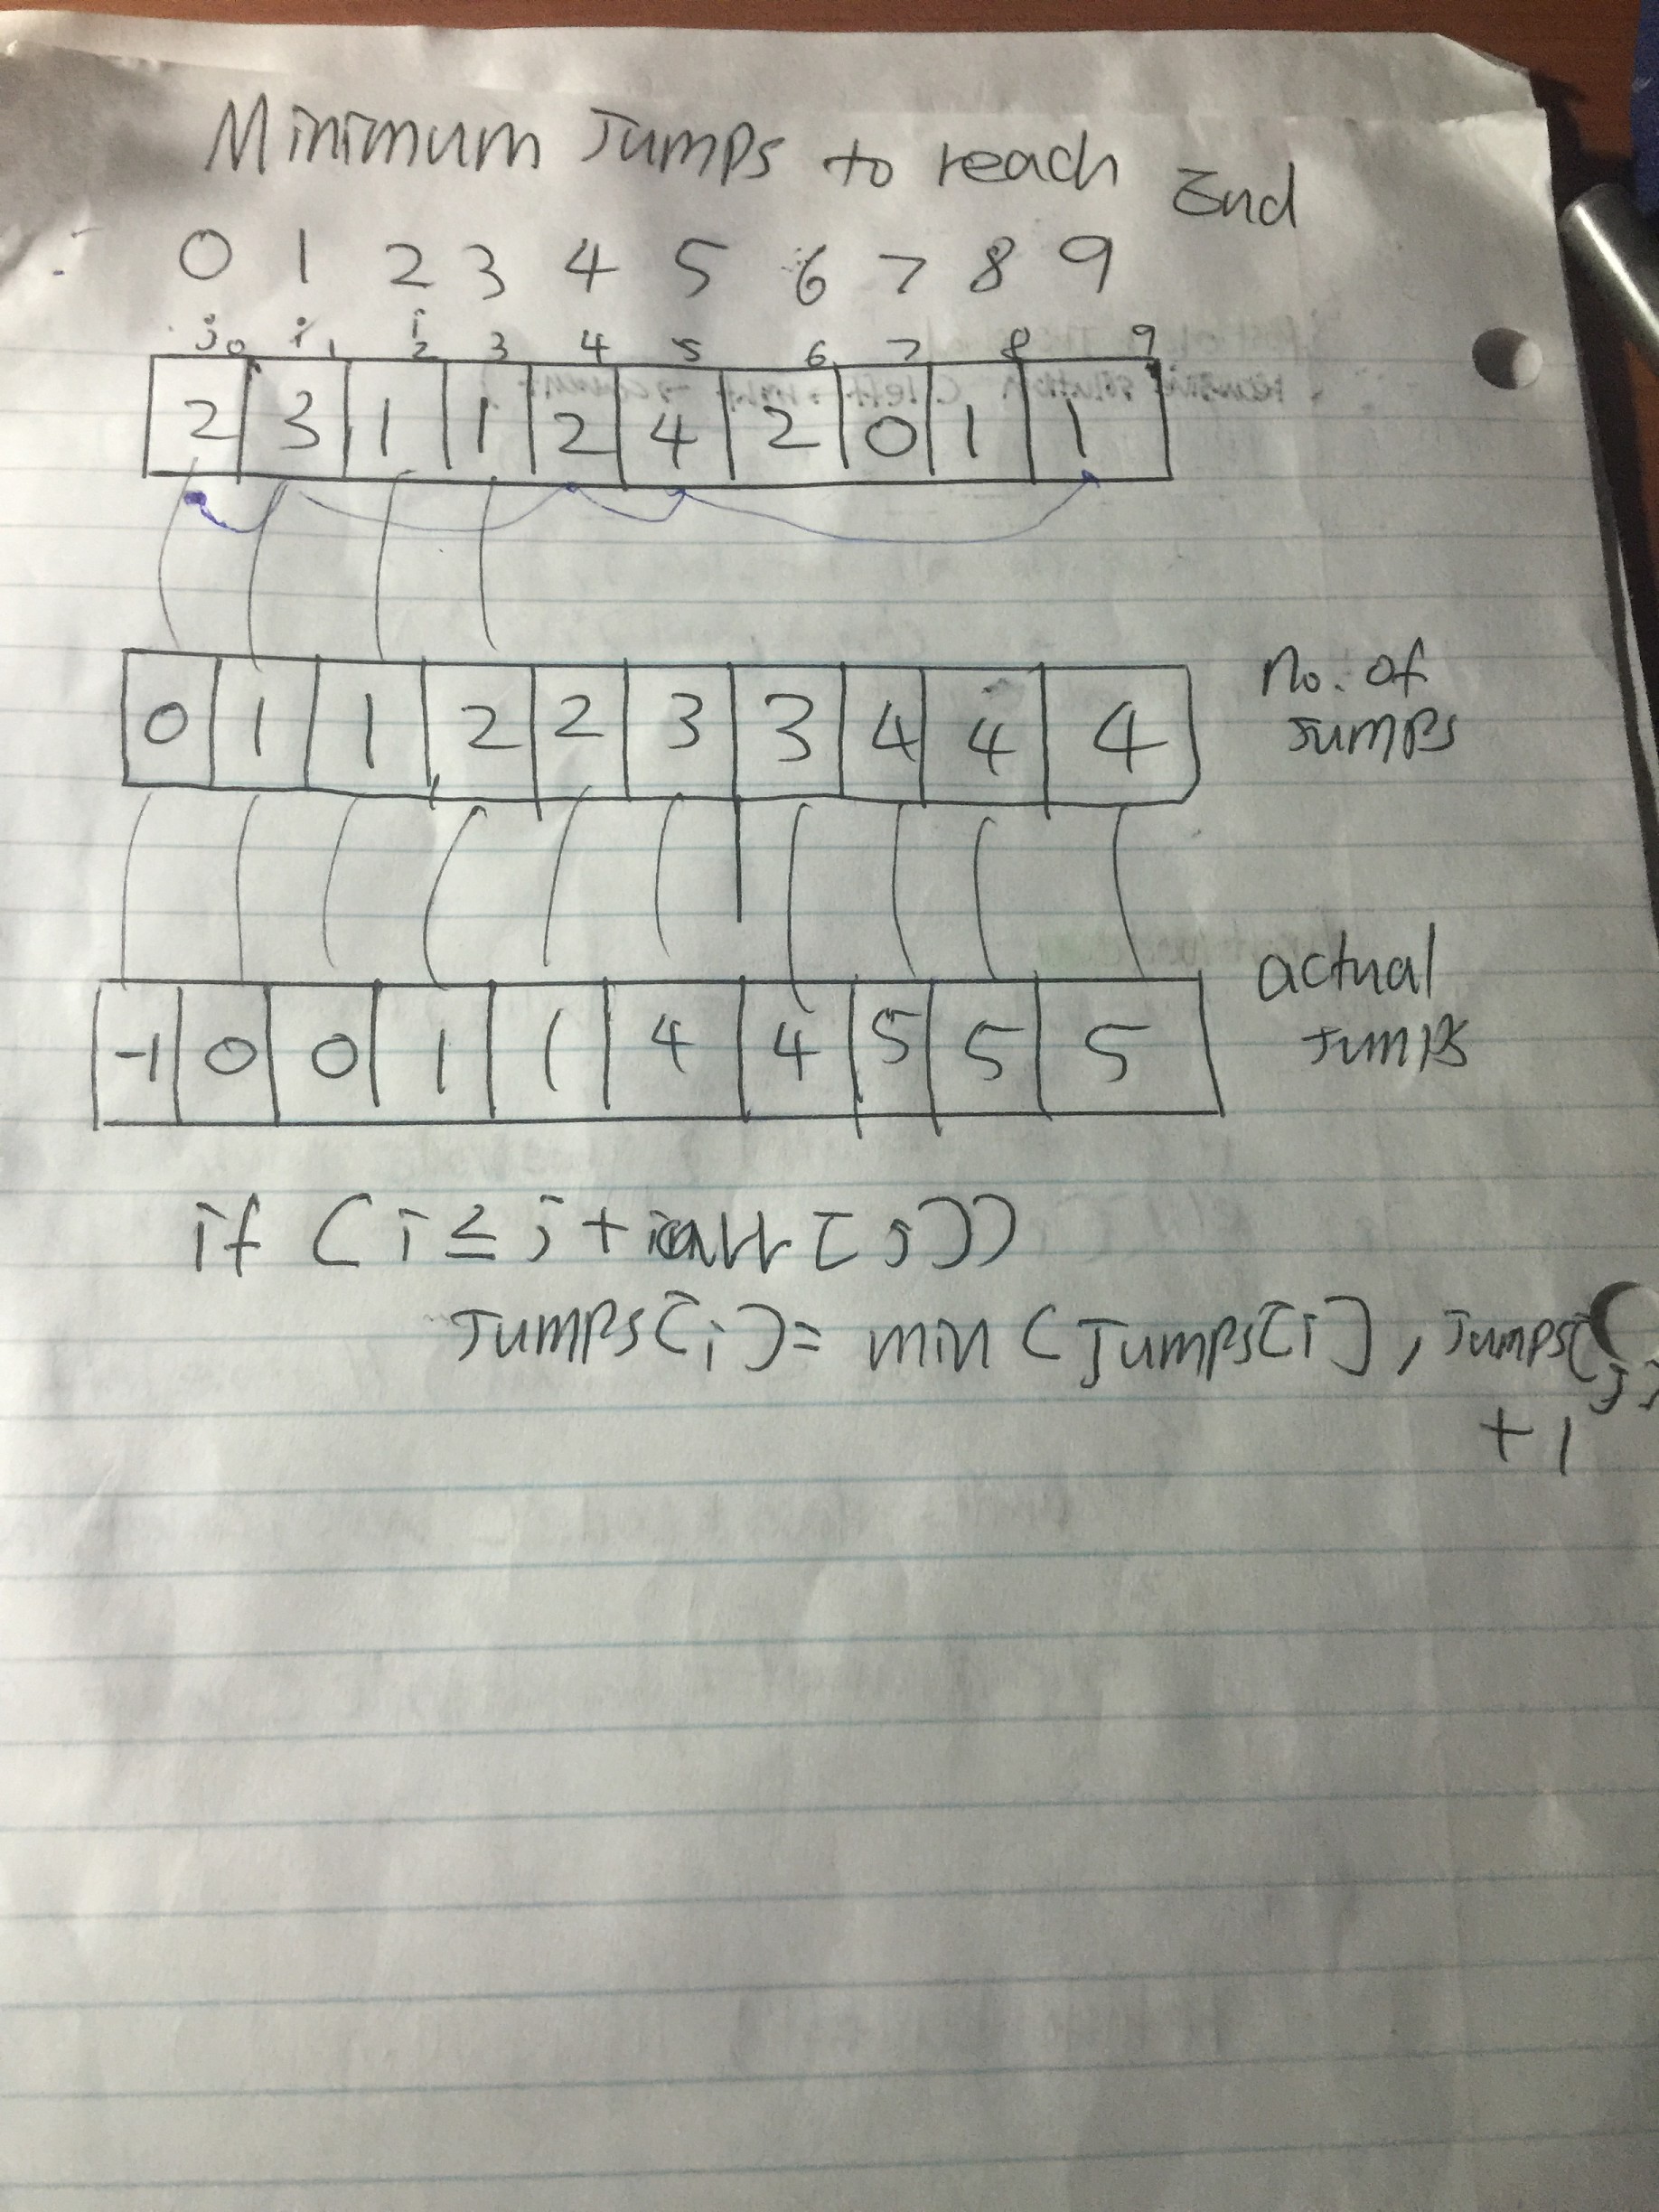 Minimum Jumps to reach End
0 1 2 3 4 5 6 7 8 9
j0 i1 i2 3 4 5 6 7 8 9
2 3 1 1 2 4 2 0 1 1
0 1 1 2 2 3 3 4 4 4
No. of Jumps
-1 0 0 1 1 4 4 5 5 5
actual Jumps
if (i ≤ j + arr[j])
Jumps[i] = min (Jumps[i], Jumps[j]
+ 1